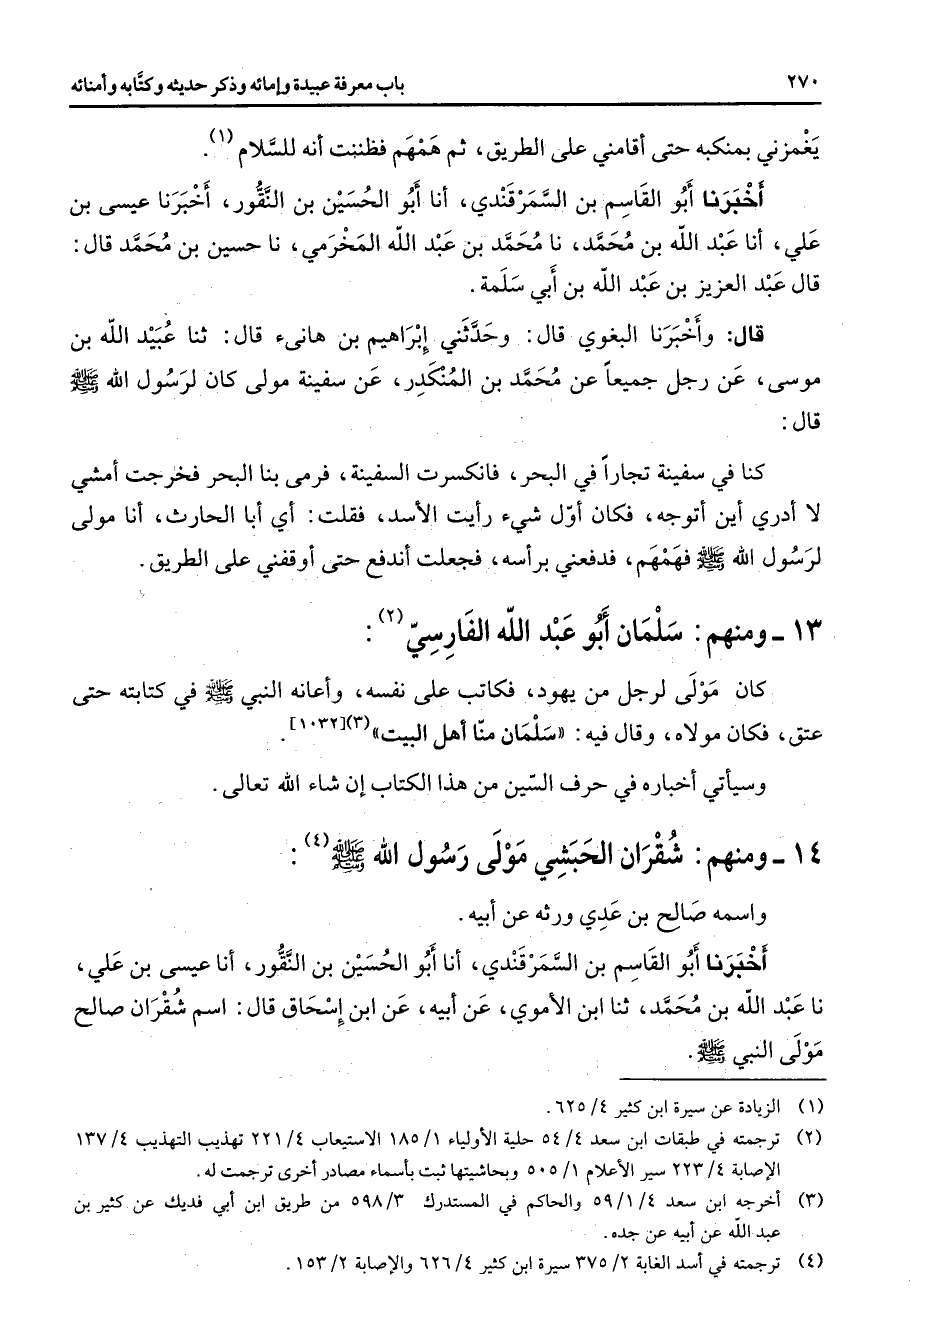 ٢٧٠ باب معرفة عبيدة وإمائه وذكر حديثه وكتَّابه وأمنائه
يَغْمزني بمنكبه حتى أقامني على الطريق، ثم هَمْهَم فظننت أنه للسَّلام(١).
أَخْبَرَنا أَبُو القَاسِم بن السَّمَرْقَندي، أنا أَبُو الحُسَيْن بن النَّقُّور، أَخْبَرَنا عيسى بن
عَلي، أنا عَبْد اللّه بن مُحَمَّد، نا مُحَمَّد بن عَبْد اللّه المَخْرَمي، نا حسين بن مُحَمَّد قال:
قال عَبْد العزيز بن عَبْد اللّه بن أَبي سَلَمة.
قال: وأَخْبَرَنا البغوي قال: وحَدَّثَني إِبْرَاهيم بن هانىء قال: ثنا عُبَيْد اللّه بن
موسى، عَن رجل جميعاً عن مُحَمَّد بن المُنْكَدِر، عَن سفينة مولى كان لرَسُول الله ﷺ
قال:
كنا في سفينة تجاراً في البحر، فانكسرت السفينة، فرمى بنا البحر فخرجت أمشي
لا أدري أين أتوجه، فكان أوّل شيء رأيت الأسد، فقلت: أي أبا الحارث، أنا مولى
لرَسُول الله ﷺ فهَمْهَم، فدفعني برأسه، فجعلت أندفع حتى أوقفني على الطريق.
١٣ ـ ومنهم: سَلْمَان أَبُو عَبْد اللّه الفَارِسِيّ(٢):
كان مَوْلَى لرجل من يهود، فكاتب على نفسه، وأعانه النبي ﷺ في كتابته حتى
عتق، فكان مولاه، وقال فيه: «سَلْمَان منّا أهل البيت»(٣)[١٠٣٢].
وسيأتي أخباره في حرف السّين من هذا الكتاب إن شاء الله تعالى.
١٤ ـ ومنهم: شُقْرَان الحَبَشِي مَوْلَى رَسُول الله ﷺ(٤):
واسمه صَالِح بن عَدِي ورثه عن أبيه.
أَخْبَرَنا أَبُو القَاسِم بن السَّمَرْقَندي، أنا أَبُو الحُسَيْن بن النَّقُّور، أنا عيسى بن عَلي،
نا عَبْد اللّه بن مُحَمَّد، ثنا ابن الأموي، عَن أبيه، عَن ابن إِسْحَاق قال: اسم شُقْرَان صالح
مَوْلَى النبي ﷺ.
(١) الزيادة عن سيرة ابن كثير ٤/ ٦٢٥.
(٢) ترجمته في طبقات ابن سعد ٤/ ٥٤ حلية الأولياء ١/ ١٨٥ الاستيعاب ٤/ ٢٢١ تهذيب التهذيب ٤/ ١٣٧
الإصابة ٤/ ٢٢٣ سير الأعلام ١/ ٥٠٥ وبحاشيتها ثبت بأسماء مصادر أخرى ترجمت له.
(٣) أخرجه ابن سعد ٤/ ١/ ٥٩ والحاكم في المستدرك ٣/ ٥٩٨ من طريق ابن أبي فديك عن كثير بن
عبد اللّه عن أبيه عن جده.
(٤) ترجمته في أسد الغابة ٢/ ٣٧٥ سيرة ابن كثير ٤/ ٦٢٦ والإصابة ٢/ ١٥٣.